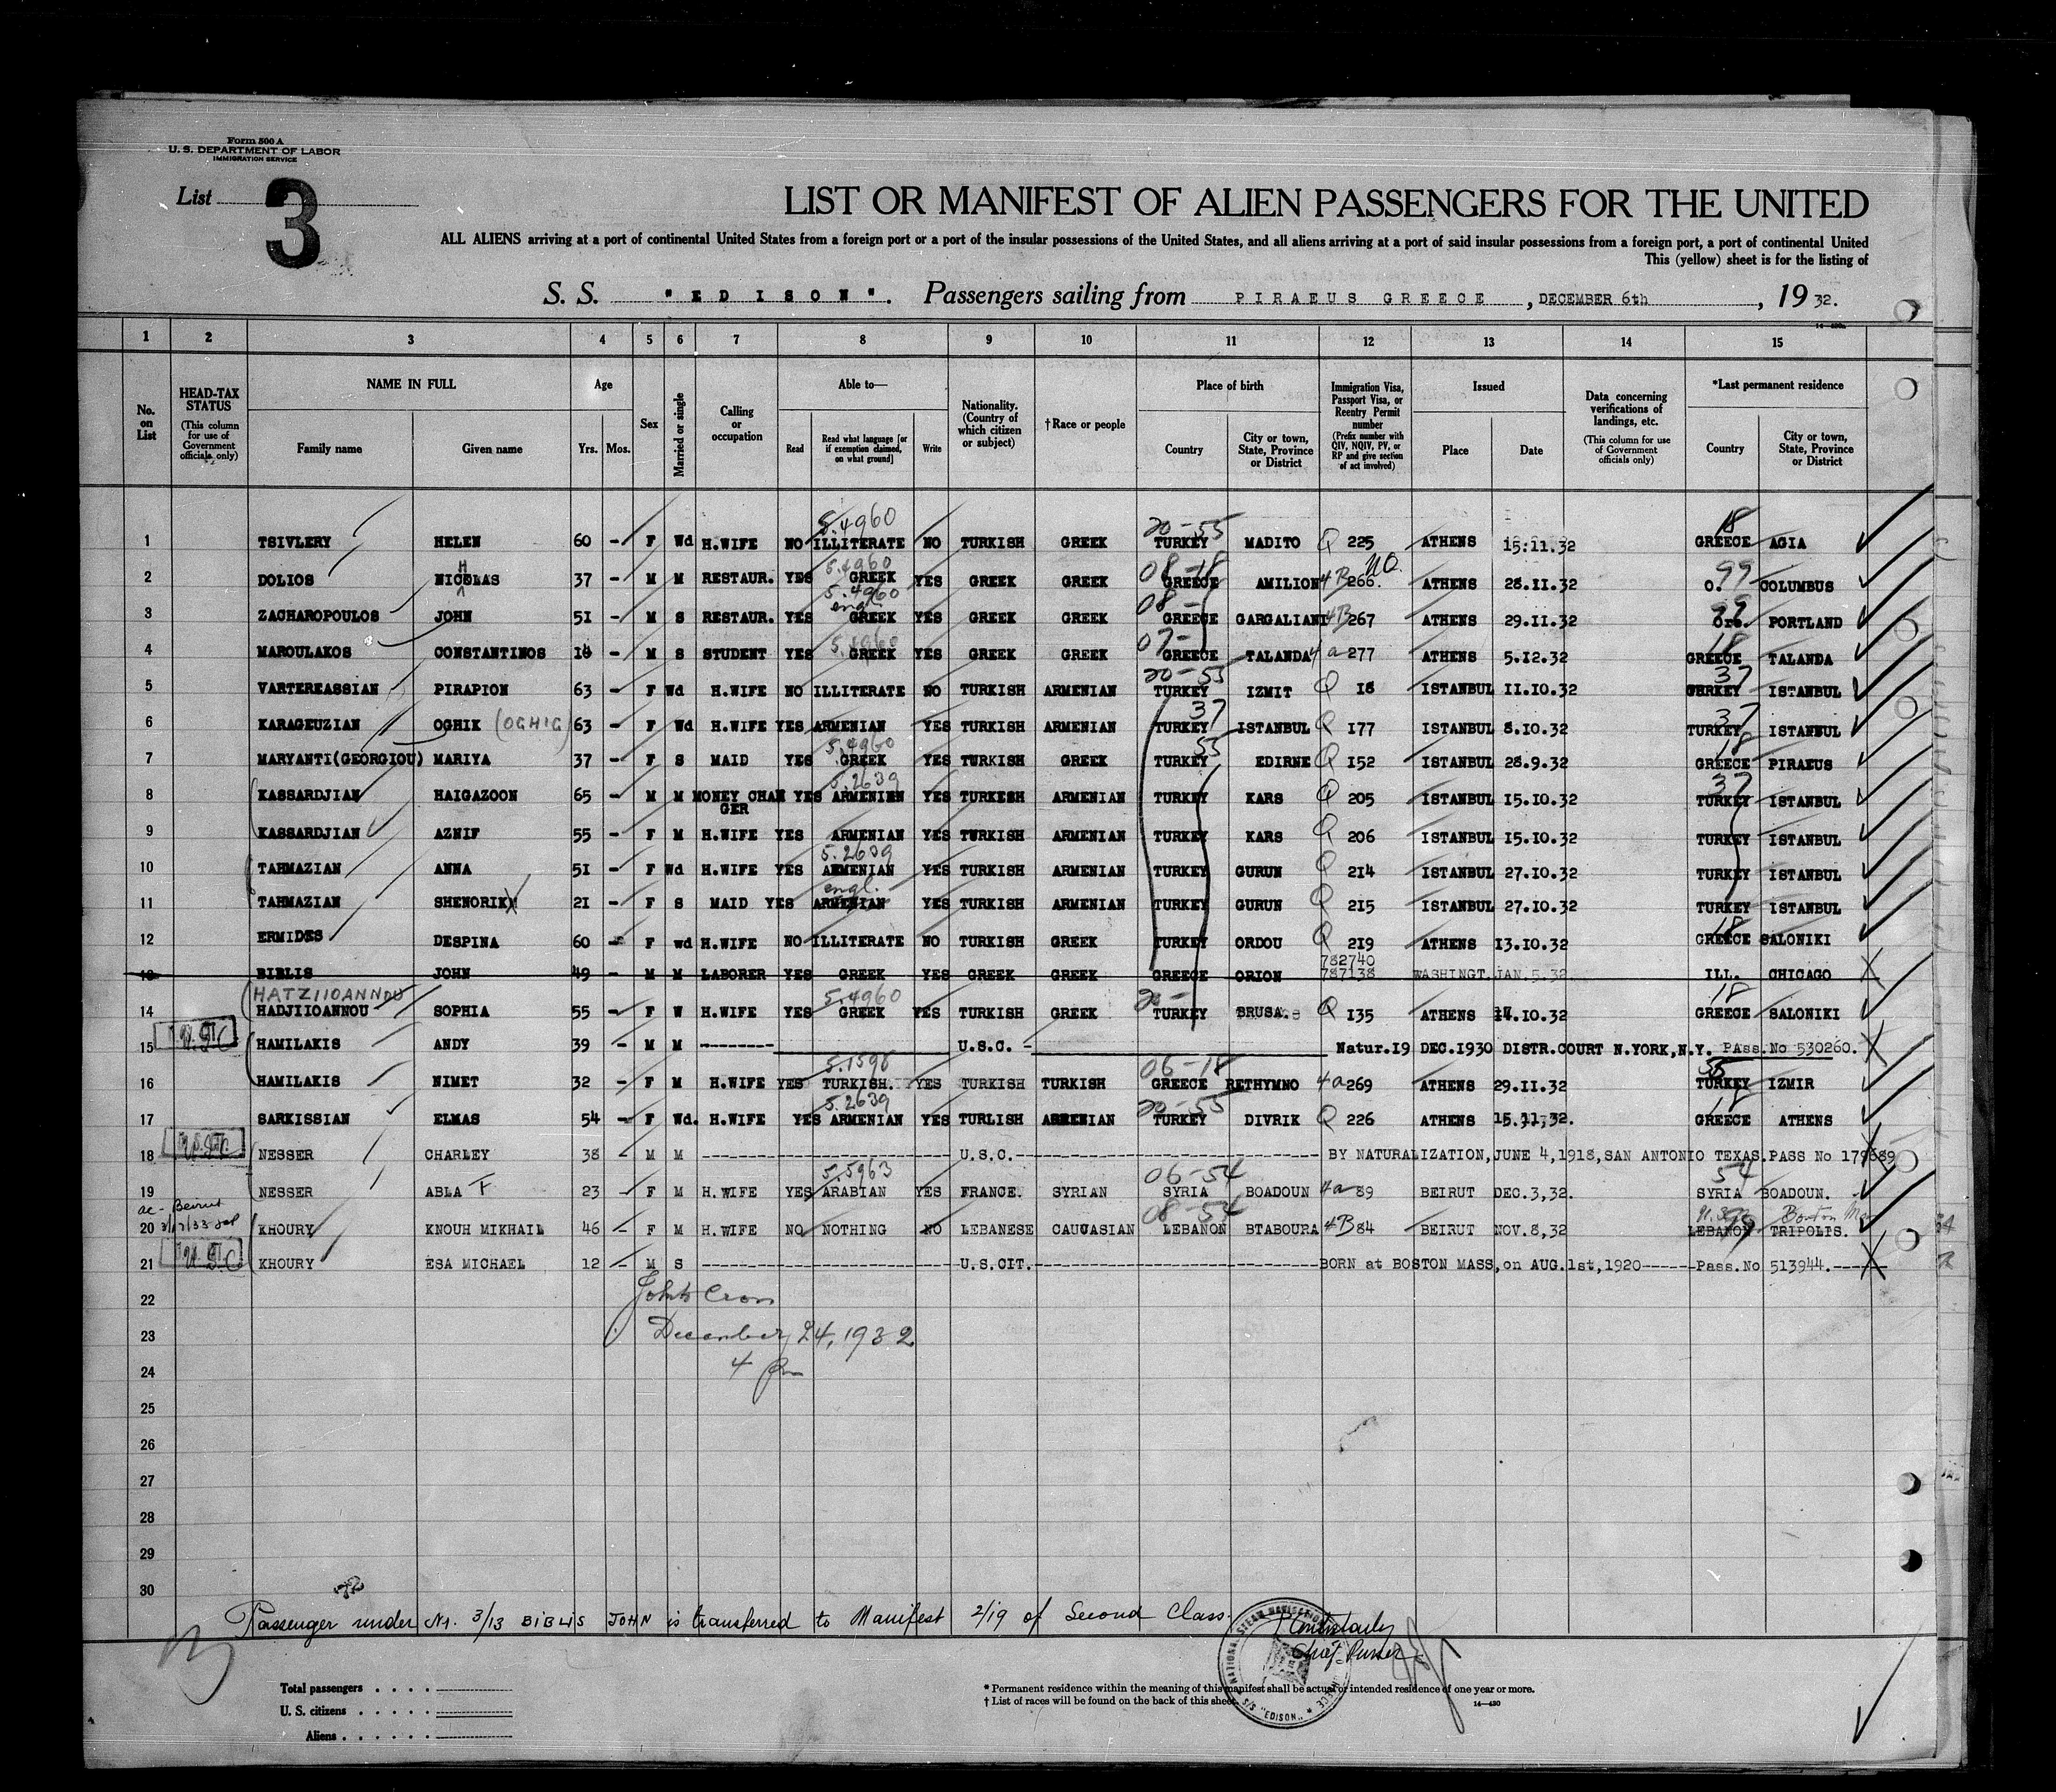 Form 500 A
U. S. DEPARTMENT OF LABOR
IMMIGRATION SERVICE
List 3
LIST OR MANIFEST OF ALIEN PASSENGERS FOR THE UNITED
ALL ALIENS arriving at a port of continental United States from a foreign port or a port of the insular possessions of the United States, and all aliens arriving at a port of said insular possessions from a foreign port, a port of continental United
This (yellow) sheet is for the listing of
S. S. "EDISON". Passengers sailing from PIRAEUS GREECE, DECEMBER 6th, 19 32.
14—480a
1 2 3 4 5 6 7 8 9 10 11 12 13 14 15
No. on List
HEAD-TAX STATUS (This column for use of Government officials only)
NAME IN FULL Family name Given name
Age Yrs. Mos.
Sex
Married or single
Calling or occupation
Able to— Read Read what language [or if exemption claimed, on what ground] Write
Nationality. (Country of which citizen or subject)
†Race or people
Place of birth Country City or town, State, Province or District
Immigration Visa, Passport Visa, or Reentry Permit number (Prefix number with QIV, NQIV, PV, or RP and give section of act involved)
Issued Place Date
Data concerning verifications of landings, etc. (This column for use of Government officials only)
*Last permanent residence Country City or town, State, Province or District
5.4960 20-55 18
1 TSIVLERY HELEN 60 - F Wd H.WIFE NO ILLITERATE NO TURKISH GREEK TURKEY MADITO Q 225 ATHENS 15.11.32 GREECE AGIA
H 5.4960 08-18 NO. 99
2 DOLIOS NICOLAS 37 - M M RESTAUR. YES GREEK YES GREEK GREEK GREECE AMILION 4B 266. ATHENS 28.11.32 O. COLUMBUS
5.4960 engl. 08- 99
3 ZACHAROPOULOS JOHN 51 - M S RESTAUR. YES GREEK YES GREEK GREEK GREECE GARGALIANI 4B 267 ATHENS 29.11.32 Ore. PORTLAND
5.4960 07- 18
4 MAROULAKOS CONSTANTINOS - M S STUDENT YES GREEK YES GREEK GREEK GREECE TALANDA 4a 277 ATHENS 5.12.32 GREECE TALANDA
20-55 37
5 VARTEREASSIAN PIRAPION 63 - F Wd H.WIFE NO ILLITERATE NO TURKISH ARMENIAN TURKEY IZMIT Q 18 ISTANBUL 11.10.32 ISTANBUL
37 37
6 KARAGEUZIAN OGHIK (OGHIG) 63 - F Wd H.WIFE YES ARMENIAN YES TURKISH ARMENIAN TURKEY ISTANBUL Q 177 ISTANBUL 8.10.32 TURKEY ISTANBUL
5.4960 55 18
7 MARYANTI(GEORGIOU) MARIYA 37 - F S MAID YES GREEK YES TURKISH GREEK TURKEY EDIRNE Q 152 ISTANBUL 28.9.32 GREECE PIRAEUS
5.2639 37
8 KASSARDJIAN HAIGAZOON 65 - M M MONEY CHAN YES ARMENIEN YES TURKESH ARMENIAN TURKEY KARS Q 205 ISTANBUL 15.10.32 TURKEY ISTANBUL
GER
9 KASSARDJIAN AZNIF 55 - F M H.WIFE YES ARMENIAN YES TURKISH ARMENIAN TURKEY KARS Q 206 ISTANBUL 15.10.32 TURKEY ISTANBUL
5.2639
10 TAHMAZIAN ANNA 51 - F Wd H.WIFE YES ARMENIAN YES TURKISH ARMENIAN TURKEY GURUN Q 214 ISTANBUL 27.10.32 TURKEY ISTANBUL
engl.
11 TAHMAZIAN SHENORIK 21 - F S MAID YES ARMENIAN YES TURKISH ARMENIAN TURKEY GURUN Q 215 ISTANBUL 27.10.32 TURKEY ISTANBUL
18
12 ERMIDES DESPINA 60 - F wd H.WIFE NO ILLITERATE NO TURKISH GREEK TURKEY ORDOU Q 219 ATHENS 13.10.32 GREECE SALONIKI
782740
13 BIBLIS JOHN 49 - M M LABORER YES GREEK YES GREEK GREEK GREECE ORION 787138 WASHINGT. JAN.5.32 ILL. CHICAGO
HATZIIOANNOU 5.4960 20- 18
14 HADJIIOANNOU SOPHIA 55 - F W H.WIFE YES GREEK YES TURKISH GREEK TURKEY BRUSA. Q 135 ATHENS 14.10.32 GREECE SALONIKI
15 HAMILAKIS ANDY 39 - M M -------- U.S.C. - Natur.19 DEC.1930 DISTR.COURT N.YORK,N.Y. Pass.No 530260.
5.1598 06-18 35
16 HAMILAKIS NIMET 32 - F M H.WIFE YES TURKISH. YES TURKISH TURKISH GREECE RETHYMNO 4a 269 ATHENS 29.11.32 TURKEY IZMIR
5.2639 20-55 18
17 SARKISSIAN ELMAS 54 - F Wd. H.WIFE YES ARMENIAN YES TURLISH ARMENIAN TURKEY DIVRIK Q 226 ATHENS 15.11.32. GREECE ATHENS
18 NESSER CHARLEY 38 - M M -------- U.S.C. -------- BY NATURALIZATION,JUNE 4,1918,SAN ANTONIO TEXAS.PASS No 179689
5.5963 06-54 54
19 NESSER ABLA F 23 - F M H.WIFE YES ARABIAN YES FRANCE. SYRIAN SYRIA BOADOUN 4a 89 BEIRUT DEC.3,32. SYRIA BOADOUN.
Beirut 08-54 99 Boston
20 KHOURY KNOUH MIKHAIL 46 - F M H.WIFE NO NOTHING NO LEBANESE CAUCASIAN LEBANON BTABOURA 4B 84 BEIRUT NOV.8,32 LEBANON TRIPOLIS.
21 KHOURY ESA MICHAEL 12 - M S -------- U.S.CIT. -------- BORN at BOSTON MASS,on AUG.1st,1920------Pass.No 513944.-----
22
December 24, 1932
23
4 pm
24
25
26
27
28
29
30
Passenger under Nr. 3/13 BIBLIS JOHN is transferred to Manifest 2/19 of Second Class.
Chief Purser
S/S "EDISON"
Total passengers . . . .
U. S. citizens . . . . .
Aliens . . . . . .
* Permanent residence within the meaning of this manifest shall be actual or intended residence of one year or more.
† List of races will be found on the back of this sheet.
14—480